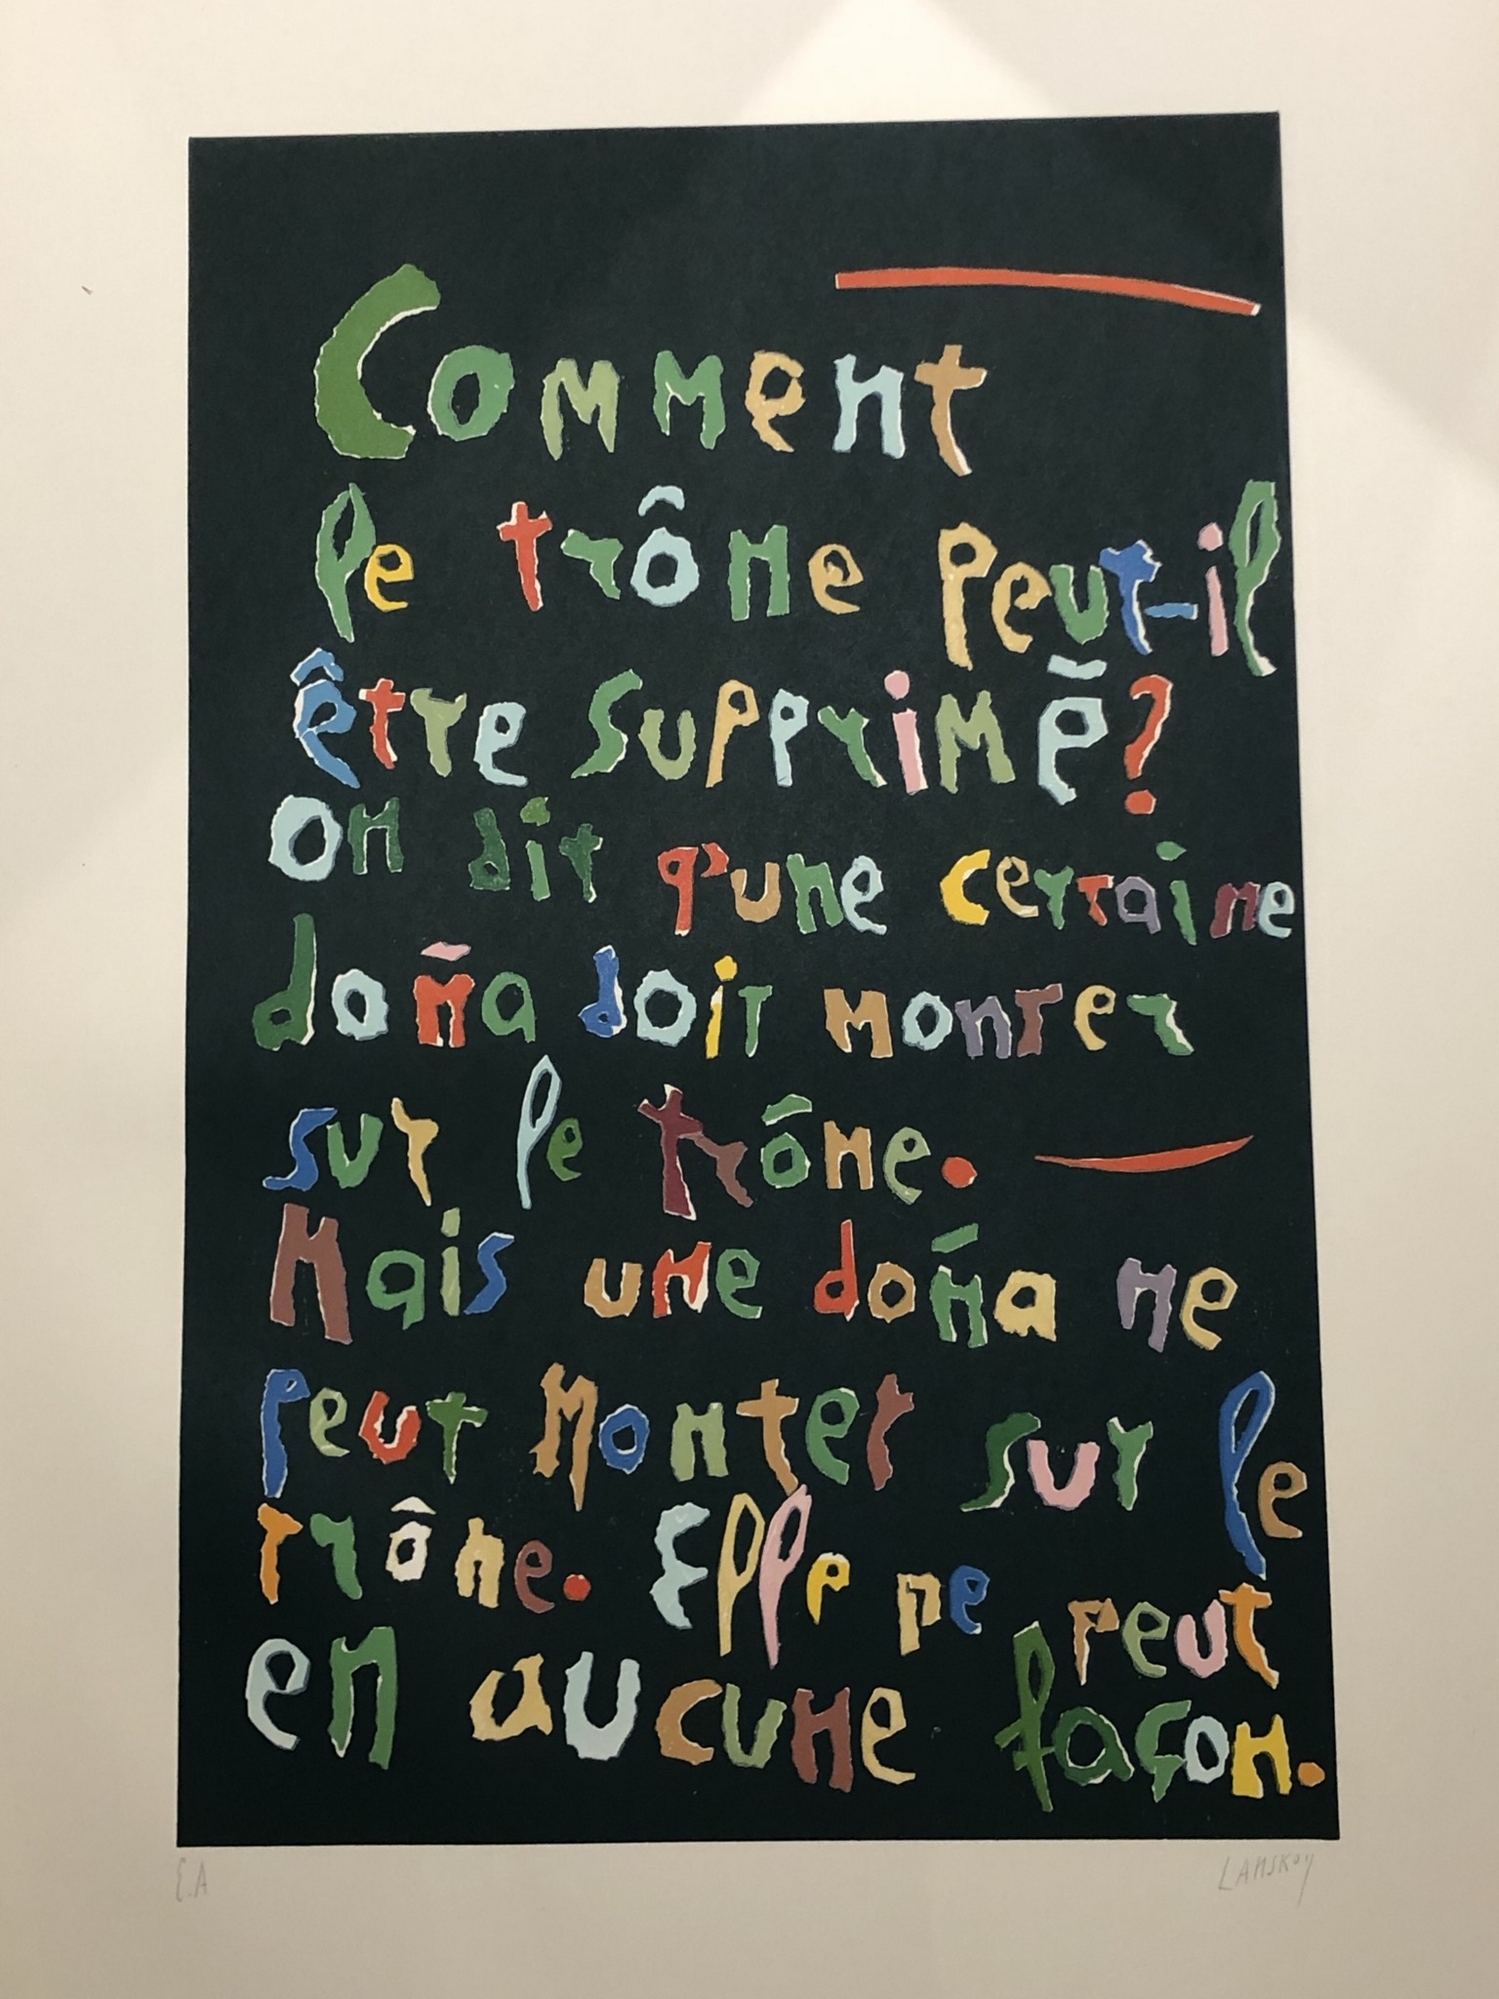 Comment
le trône peut-il
être supprimé?
on dit q'une certaine
doña doit monter
sur le trône.
Mais une doña ne
peut monter sur le
trône. Elle ne peut
en aucune façon.
E.A
LANSKOY